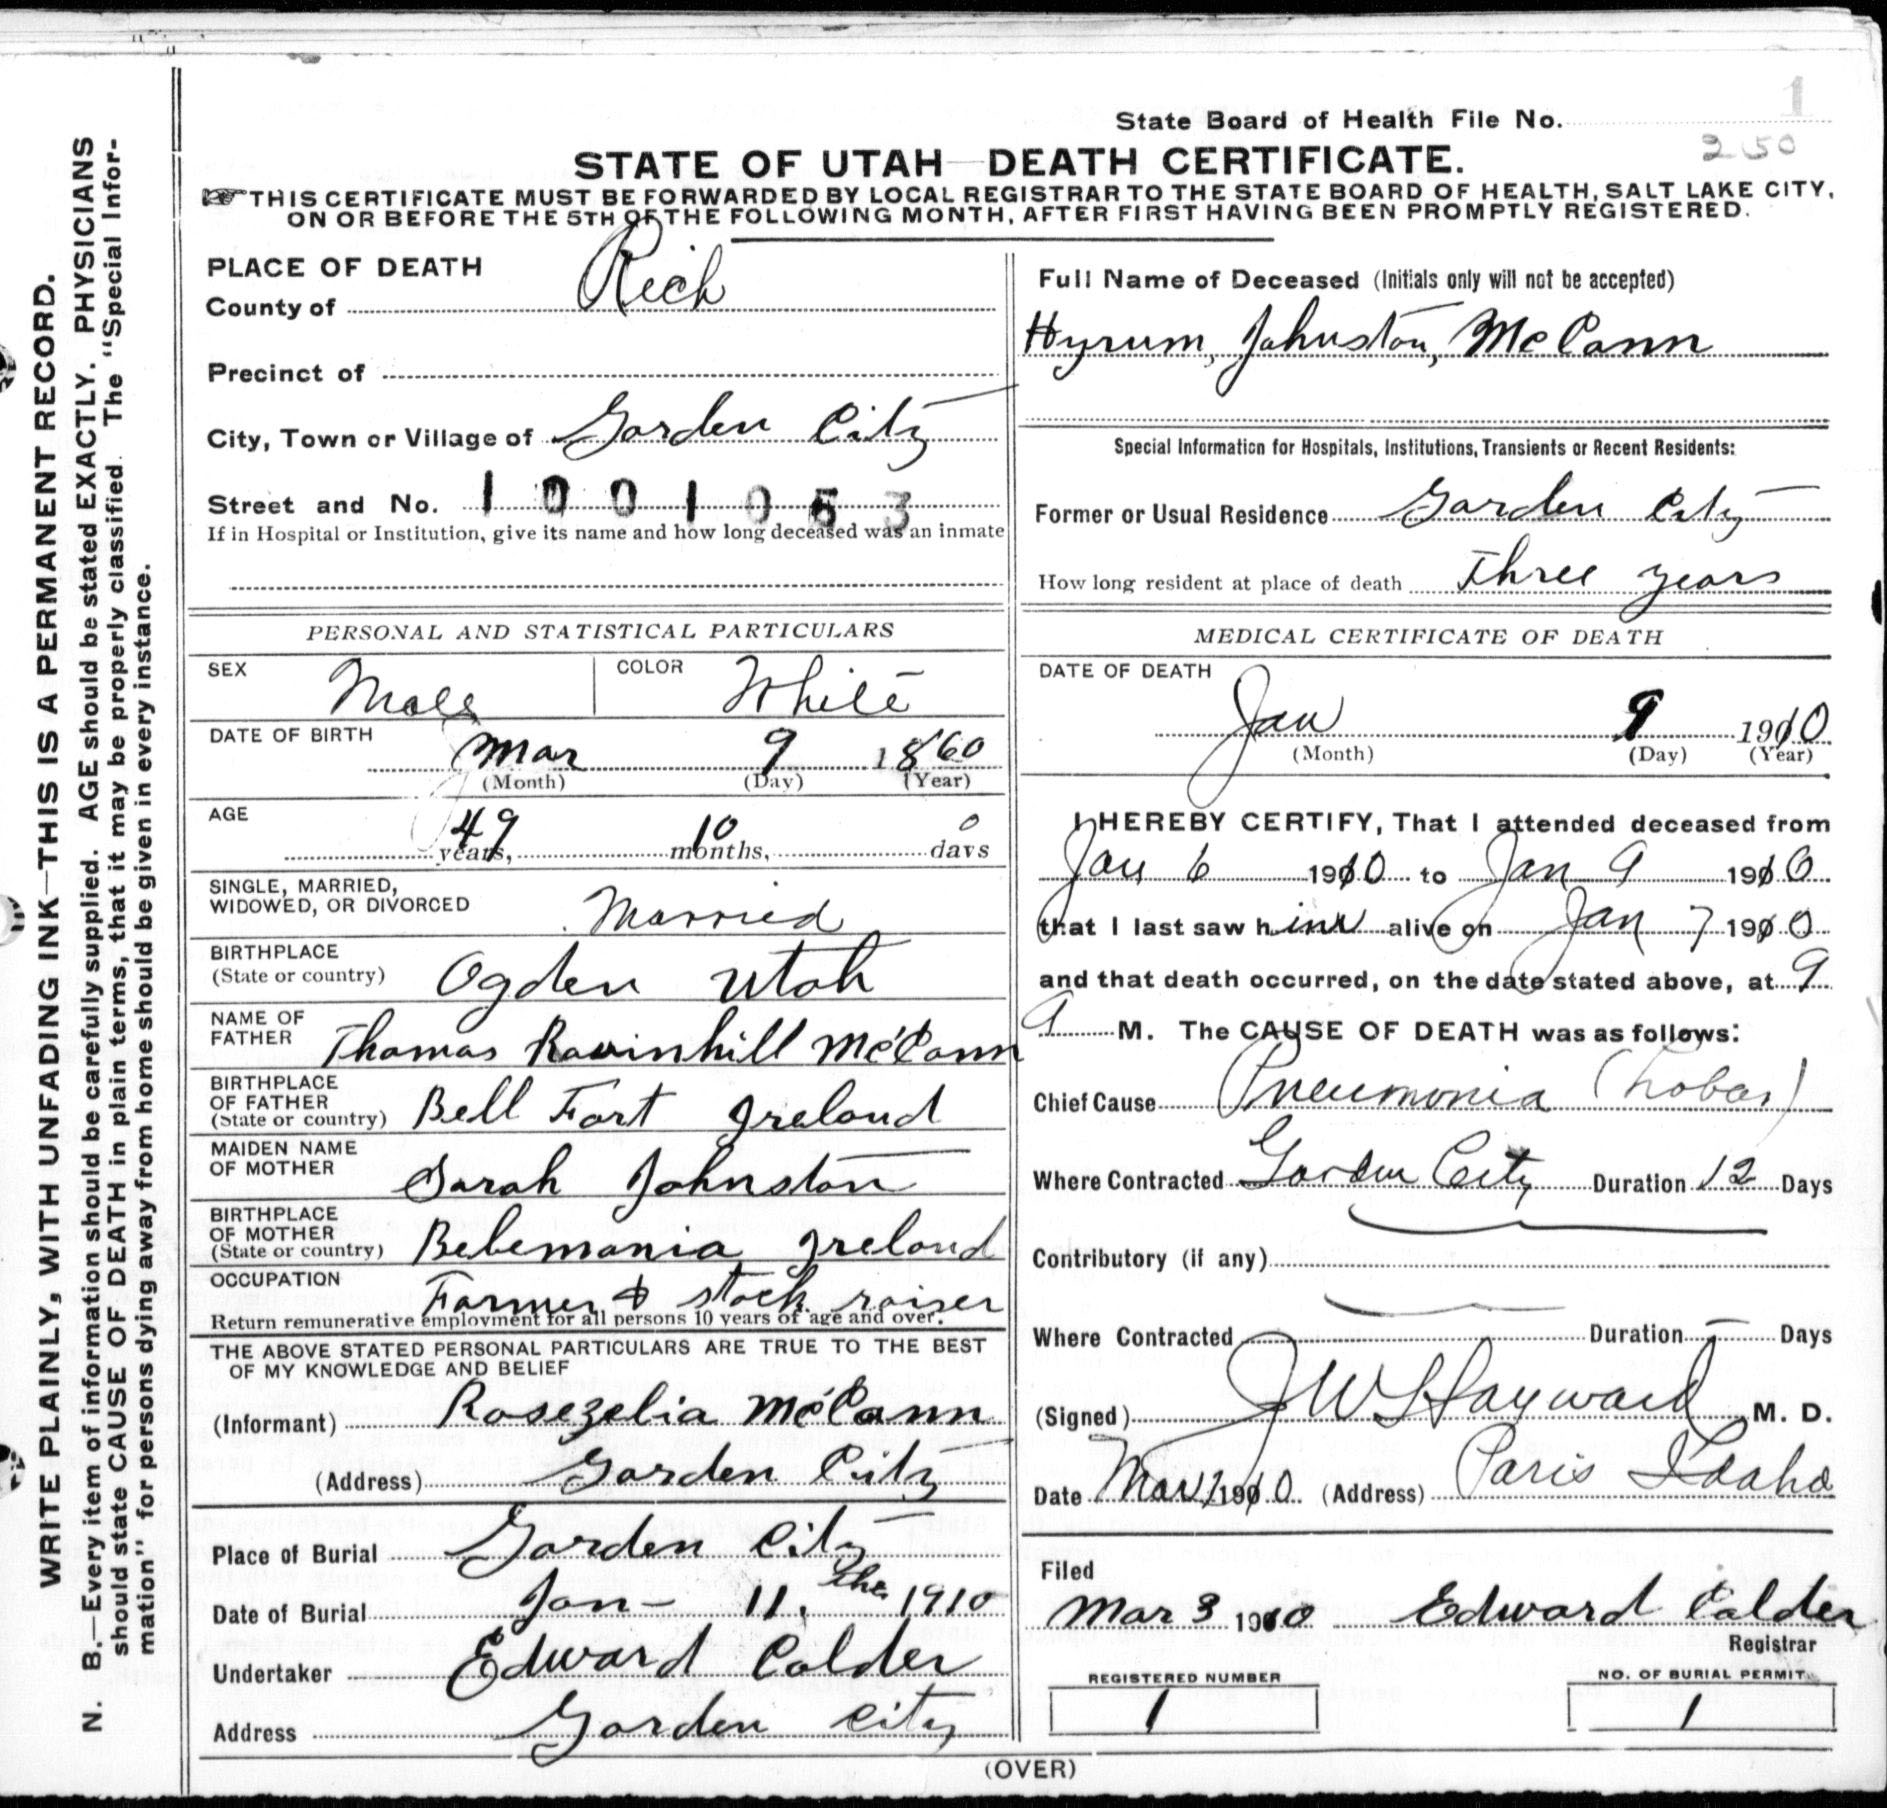 WRITE PLAINLY, WITH UNFADING INK—THIS IS A PERMANENT RECORD.
N. B.—Every item of information should be carefully supplied. AGE should be stated EXACTLY. PHYSICIANS
should state CAUSE OF DEATH in plain terms, that it may be properly classified. The "Special Infor-
mation" for persons dying away from home should be given in every instance.
1
State Board of Health File No.
250
STATE OF UTAH—DEATH CERTIFICATE.
THIS CERTIFICATE MUST BE FORWARDED BY LOCAL REGISTRAR TO THE STATE BOARD OF HEALTH, SALT LAKE CITY,
ON OR BEFORE THE 5TH OF THE FOLLOWING MONTH, AFTER FIRST HAVING BEEN PROMPTLY REGISTERED.
PLACE OF DEATH
County of Rich
Precinct of
City, Town or Village of Garden City
Street and No. 1001053
If in Hospital or Institution, give its name and how long deceased was an inmate
Full Name of Deceased (Initials only will not be accepted)
Hyrum, Johnston, McCann
Special Information for Hospitals, Institutions, Transients or Recent Residents:
Former or Usual Residence Garden City
How long resident at place of death Three years
PERSONAL AND STATISTICAL PARTICULARS
SEX Male COLOR White
DATE OF BIRTH
Mar 9 1860
(Month) (Day) (Year)
AGE
49 years, 10 months, 0 days
SINGLE, MARRIED,
WIDOWED, OR DIVORCED Married
BIRTHPLACE
(State or country) Ogden Utah
NAME OF
FATHER Thomas Ravinhill McCann
BIRTHPLACE
OF FATHER
(State or country) Bell Fort Ireland
MAIDEN NAME
OF MOTHER Sarah Johnston
BIRTHPLACE
OF MOTHER
(State or country) Belemania Ireland
OCCUPATION Farmer & stock raiser
Return remunerative employment for all persons 10 years of age and over.
THE ABOVE STATED PERSONAL PARTICULARS ARE TRUE TO THE BEST
OF MY KNOWLEDGE AND BELIEF
(Informant) Rosezelia McCann
(Address) Garden City
Place of Burial Garden City
Date of Burial Jan- 11. the 1910
Undertaker Edward Calder
Address Garden City
MEDICAL CERTIFICATE OF DEATH
DATE OF DEATH
Jan 9 1910
(Month) (Day) (Year)
I HEREBY CERTIFY, That I attended deceased from
Jan 6 1910 to Jan 9 1910
that I last saw him alive on Jan 7 1910
and that death occurred, on the date stated above, at 9
a M. The CAUSE OF DEATH was as follows:
Chief Cause Pneumonia (Lobar)
Where Contracted Garden City Duration 12 Days
Contributory (if any)
Where Contracted Duration — Days
(Signed) J W Hayward M. D.
Date Mar 1 1910 (Address) Paris Idaho
Filed
Mar 3 1910 Edward Calder
Registrar
REGISTERED NUMBER
1
NO. OF BURIAL PERMIT
1
(OVER)